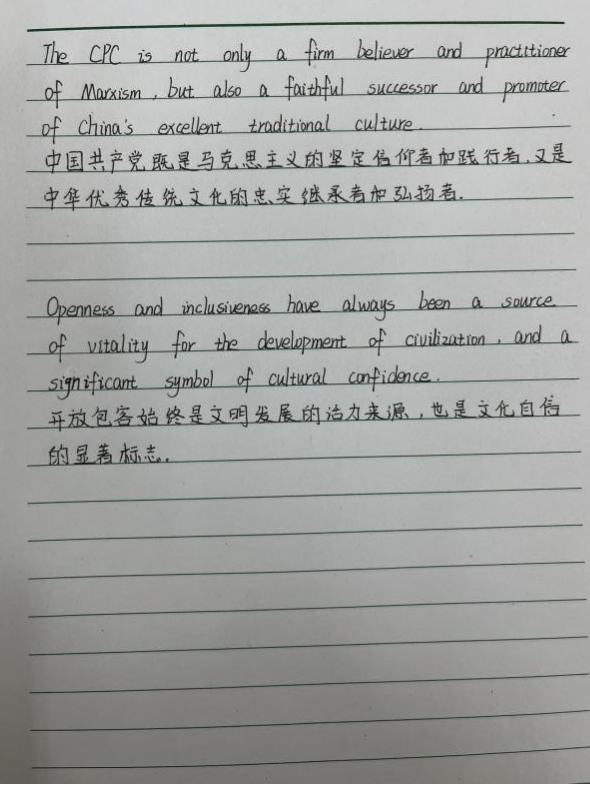 The CPC is not only a firm believer and practitioner
of Marxism, but also a faithful successor and promoter
of China's excellent traditional culture.
中国共产党既是马克思主义的坚定信仰者和践行者,又是
中华优秀传统文化的忠实继承者和弘扬者.
Openness and inclusiveness have always been a source
of vitality for the development of civilization, and a
significant symbol of cultural confidence.
开放包容始终是文明发展的活力来源,也是文化自信
的显著标志.